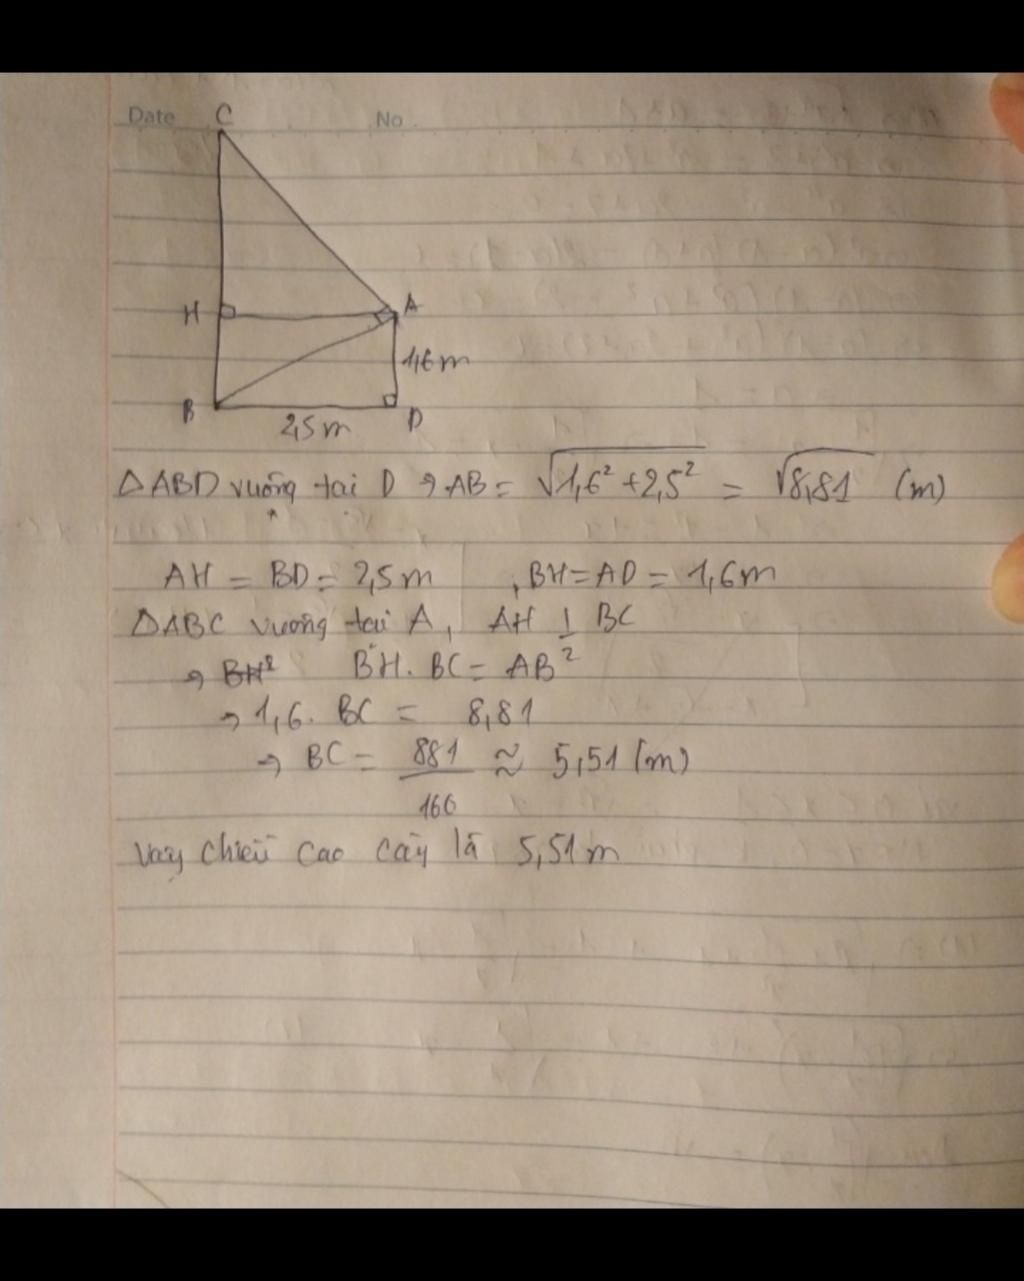 Date C No
H A
1,6m
B D
2,5m
ΔABD vuông tại D → AB = √1,6² + 2,5² = √8,81 (m)
AH = BD = 2,5m , BH = AD = 1,6m
ΔABC vuông tại A, AH ⊥ BC
→ BH² BH. BC = AB²
→ 1,6. BC = 8,81
→ BC = 881/160 ≈ 5,51 (m)
Vậy chiều cao cây là 5,51m